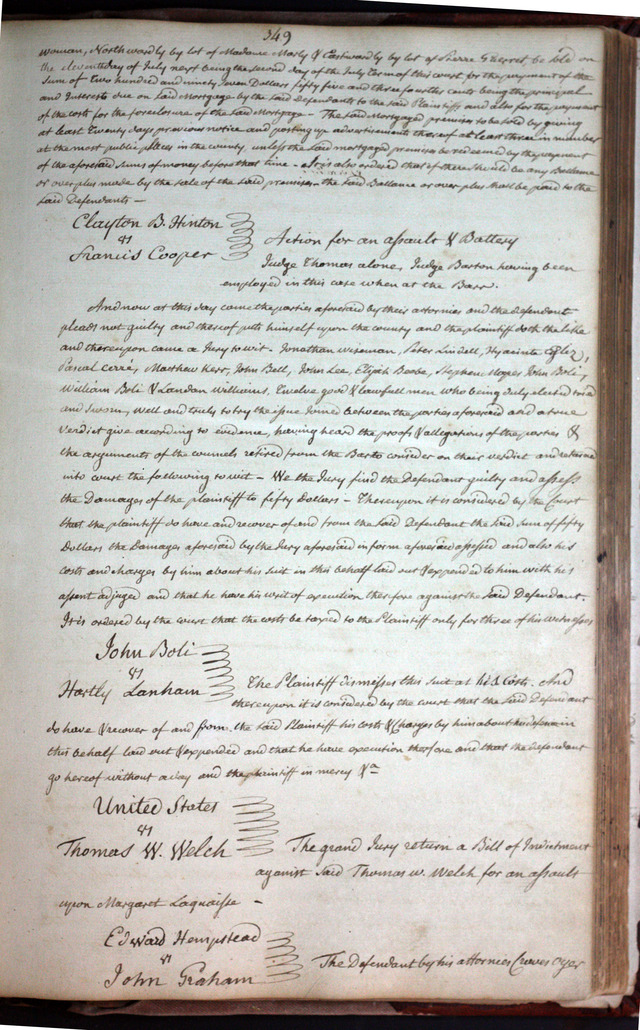 349
woman, Northwardly by lot of Madame Marly & Eastwardly by lot of Pierre Guerret be sold on
the eleventh day of July next being the second day of the July Term of this court for the payment of the
Sum of Two hundred and ninety seven Dollars fifty five and three fourths cents being the principal
and Interests due on said Mortgage by the said defendants to the said Plaintiff and also for the payment
of the costs for the foreclosure of the said Mortgage - The said Mortgaged premises to be sold by giving
at least Twenty days previous notice and posting up advertisements thereof at least three in number
at the most public places in the county, unless the said mortgaged premises be redeemed by the payment
of the aforesaid sums of money before that time - It is also ordered that if there should be any Ballance
or over plus made by the sale of the said premises - the said Ballance or over plus shall be paid to the
said Defendants -
Clayton B. Hinton
vs
Francis Cooper
Action for an assault & Battery
Judge Thomas alone, Judge Barton having been
employed in this case when at the Barr.
And now at this day come the parties aforesaid by their attornies and the defendant
pleads not guilty and thereof puts himself upon the county and the plaintiff doth the like
and thereupon came a Jury to wit - Jonathan Wiseman, Peter Lindell, Hyacinte
Pascal Cerré, Matthew Kerr, John Bell, John Lee, Elijah Beebe, Stephen John Boli,
William Boli & Landan Williams, Twelve good & lawfull men who being duly elected tried
and sworn, well and truly to try the issue Joined between the parties aforesaid and a true
Verdict give according to evidence, having heard the proofs & allegations of the parties &
the arguments of the councels retired from the Bar to consider on their verdict and returned
into court the following to wit - We the Jury find the Defendant guilty and assess
the Damages of the plaintiff to fifty dollars - Thereupon it is considered by the Court
that the plaintiff do have and recover of and from the said Defendant the said sum of fifty
Dollars the Damages aforesaid by the Jury aforesaid in form aforesaid assessed and also his
Costs and charges by him about his suit in this behalf laid out & expended to him with his
assent adjuged and that he have his writ of execution therfore against the said Defendant.
It is ordered by the court that the costs be taxed to the Plaintiff only for three of his witnesses
John Boli
vs
Hartly Lanham
The Plaintiff dismisses this suit at his costs. And
thereupon it is considered by the court that the said Defendant
do have & recover of and from the said Plaintiff his costs & Charges by him about his defence in
this behalf laid out & expended and that he have execution therfore and that the defendant
go hereof without a day and the plaintiff in mercy &a
United States
vs
Thomas W. Welch
The grand Jury return a Bill of Indictment
against said Thomas W. Welch for an assault
upon Margaret Laquaisse -
Edward Hempstead
vs
John Graham
The Defendant by his attornies Craves Oyer